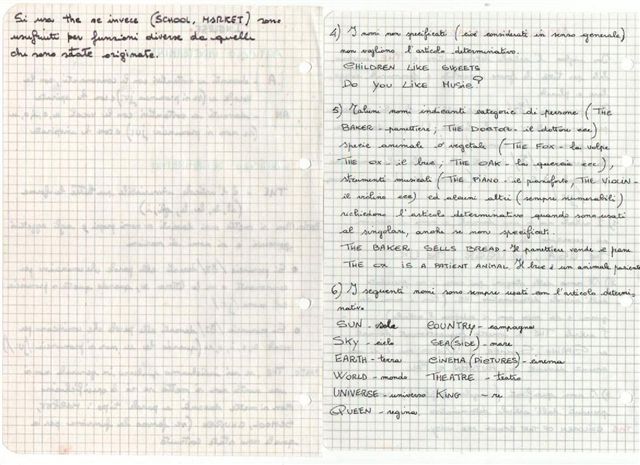 Si usa the se invece (SCHOOL, MARKET) sono
usufruiti per funzioni diverse da quelle
che sono state originate.
4) I nomi non specificati (cioè considerati in senso generale)
non vogliono l'articolo determinativo.
CHILDREN LIKE SWEETS
DO YOU LIKE MUSIC?
5) Taluni nomi indicanti categorie di persone (THE
BAKER - panettiere; THE DOCTOR - il dottore ecc)
specie animale o vegetale (THE FOX - la volpe
THE OX - il bue; THE OAK - la quercia ecc),
strumenti musicali (THE PIANO - il pianoforte, THE VIOLIN -
il violino ecc) ed alcuni altri (sempre numerabili)
richiedono l'articolo determinativo quando sono usati
al singolare, anche se non specificati.
THE BAKER SELLS BREAD. Il panettiere vende il pane
THE OX IS A PATIENT ANIMAL Il bue è un animale paziente
6) I seguenti nomi sono sempre usati con l'articolo determi-
nativo
SUN - sole COUNTRY - campagna
SKY - cielo SEA(SIDE) - mare
EARTH - terra CINEMA (PICTURES) - cinema
WORLD - mondo THEATRE - teatro
UNIVERSE - universo KING - re
QUEEN - regina